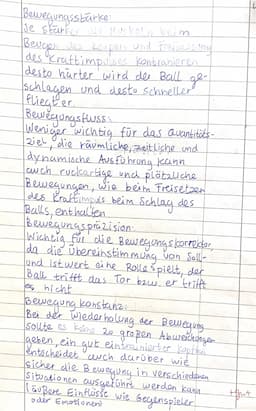 Bewegungsstärke:
Je stärker die Muskeln beim
Beugen des Körpers und Freisetzung
des Kraftimpulses kontrahieren
desto härter wird der Ball ge-
schlagen und desto schneller
fliegt er.
Bewegungsfluss:
Weniger wichtig für das Quantitäts-
Ziel, die räumliche, zeitliche und
dynamische Ausführung kann
auch ruckartige und plötzliche
Bewegungen, wie beim Freisetzen
des Kraftimpuls beim Schlag des
Balls, enthalten
Bewegungspräzision:
Wichtig für die Bewegungskorrektur,
da die Übereinstimmung von Soll-
und Istwert eine Rolle spielt, der
Ball trifft das Tor bzw. er trifft
es nicht
Bewegungskonstanz:
Bei der Wiederholung der Bewegung
sollte es keine zu großen Abweichungen
geben, ein gut eintrainierter
entscheidet auch darüber wie
sicher die Bewegung in verschiedenen
Situationen ausgeführt werden kann
(äußere Einflüsse wie Gegenspieler
oder Emotionen)